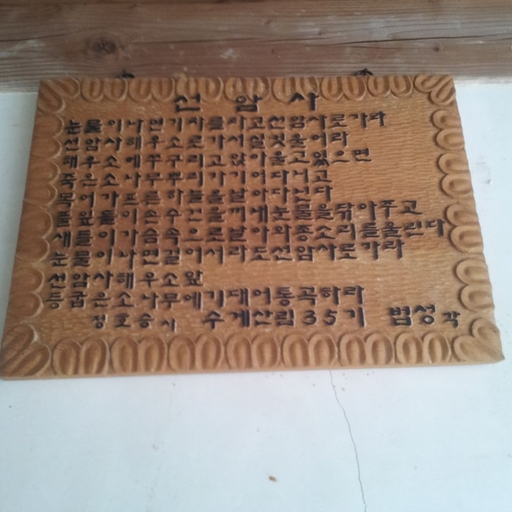 선암사
눈물이나면기차를타고선암사로가라
선암사해우소로가서실컷울어라
해우소에쭈구리고앉아울고있으면
죽은소나무뿌리가기어다니고
목어가푸른하늘을날아다닌다
풀잎들이손수건을꺼내눈물을닦아주고
새들이가슴속으로날아와종소리를울린다
눈물이나면걸어서라도선암사로가라
선암사해우소앞
등굽은소나무에기대어통곡하라
정호승시 수계산림35기 범성각